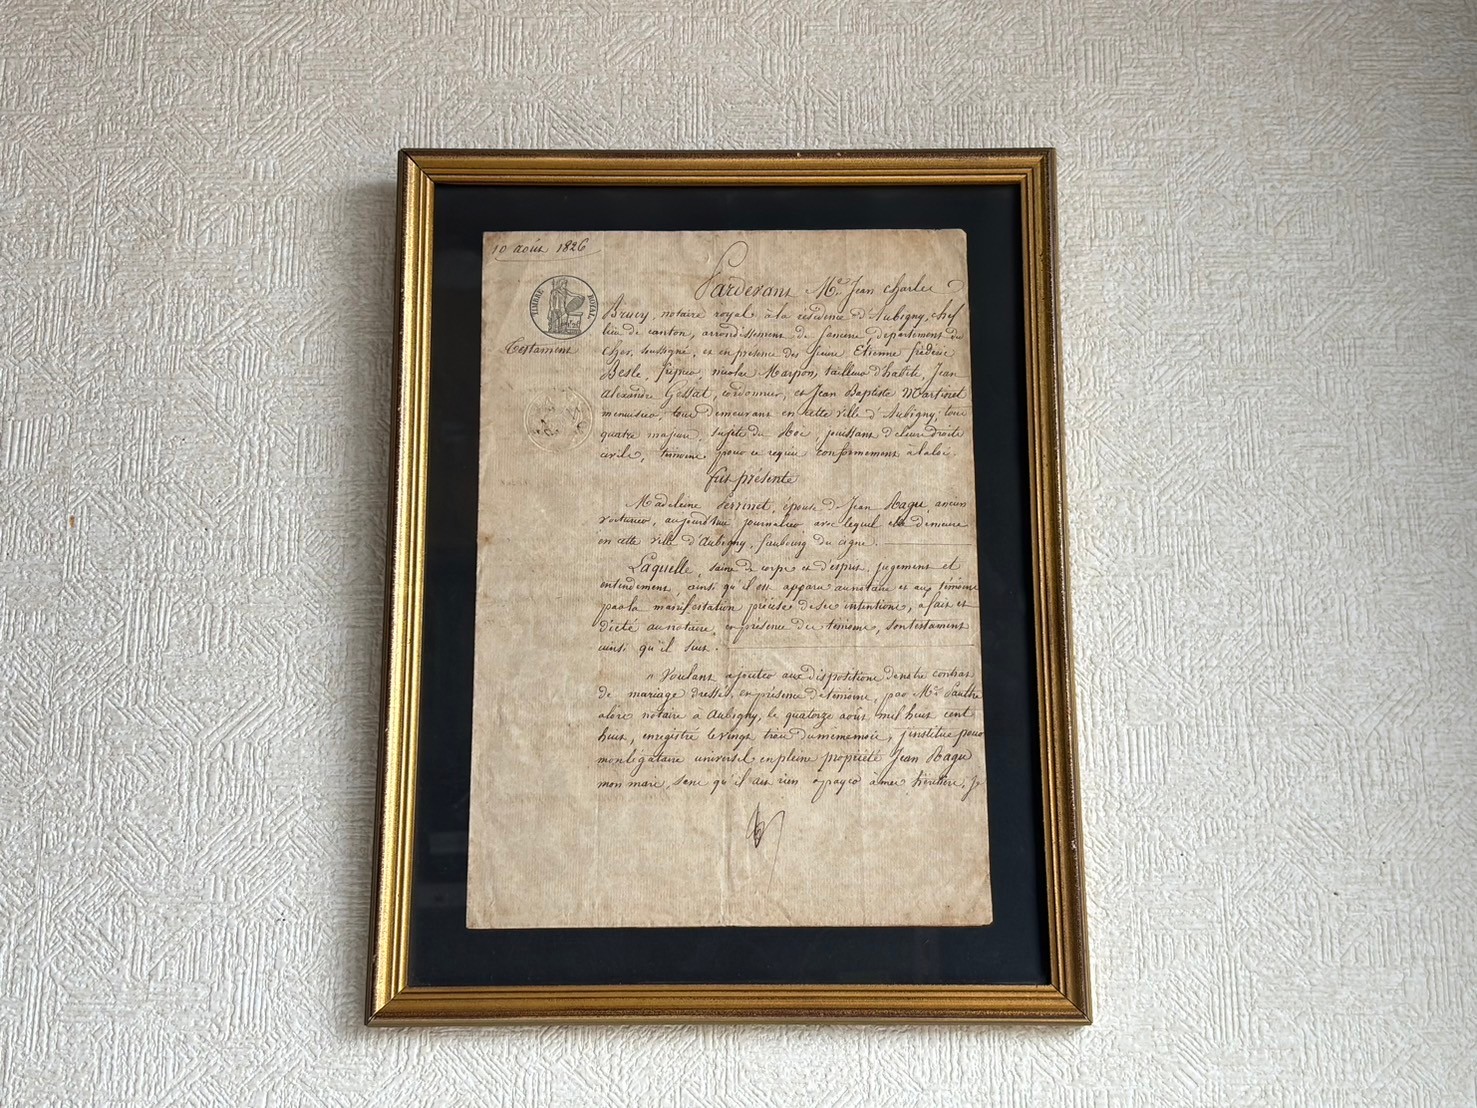 10 août 1826
Pardevant Me Jean Charles
TIMBRE ROYAL
Brucy, notaire royal à la résidence d'Aubigny, chef
lieu de canton, arrondissement de Sancerre, département du
Testament
Cher, soussigné, et en présence des sieurs Etienne frédéric
Besle, fripier, nicolas Marpon, tailleur d'habits, Jean
alexandre Gessat, cordonnier, et Jean Baptiste Martinet
menuisier tous demeurans en cette ville d'Aubigny, tous
quatre majeurs, sujets du Roi, jouissans de leurs droits
civils, témoins pour ce requis conformément à la loi.
fut présente
Madeleine Perrinet, épouse de Jean Ragu, ancien
voiturier, aujourd'hui journalier avec lequel elle demeure
en cette ville d'Aubigny, faubourg du cigne.
Laquelle, saine de corps et d'esprit, jugement et
entendement, ainsi qu'il est apparu au notaire et aux témoins
par la manifestation précise de ses intentions, a fait et
dicté au notaire, en présence des témoins, son testament
ainsi qu'il suit.
" Voulant ajouter aux dispositions de notre contrat
de mariage dressé, en présence de témoins, par Me
alors notaire à Aubigny, le quatorze août mil huit cent
huit, enregistré le vingt trois du même mois, j'institue pour
mon légataire universel en pleine propriété Jean Ragu
mon mari, sans qu'il ait rien à payer à mes héritiers. Je